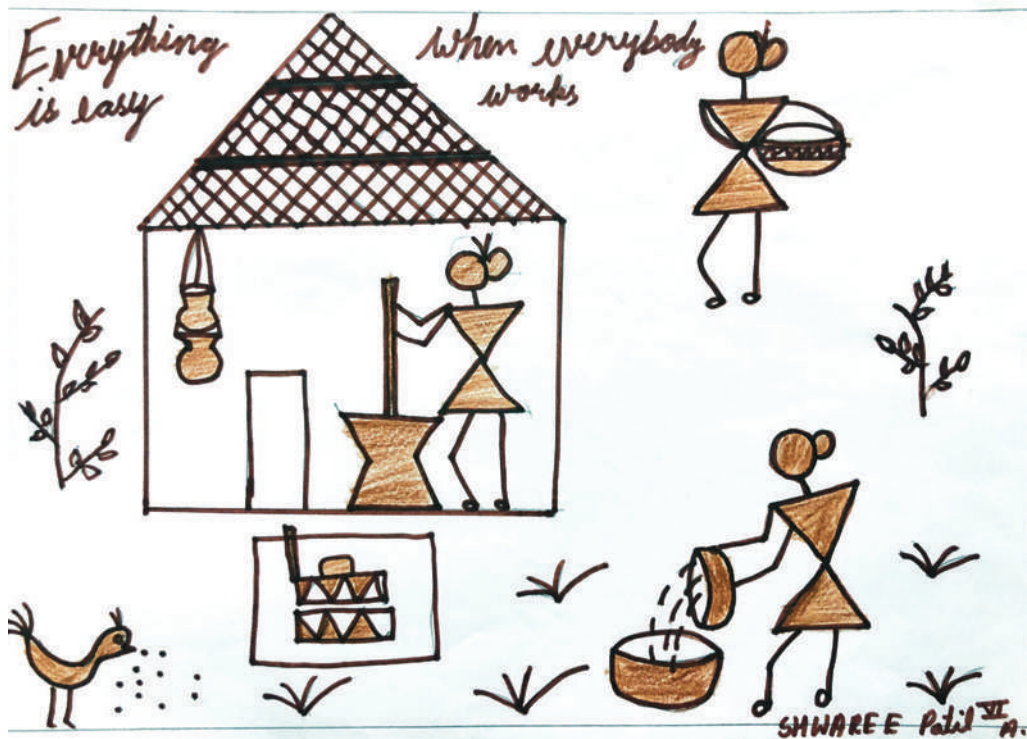 Everything
is easy
when everybody
works
SHWAREE Patil VI A.